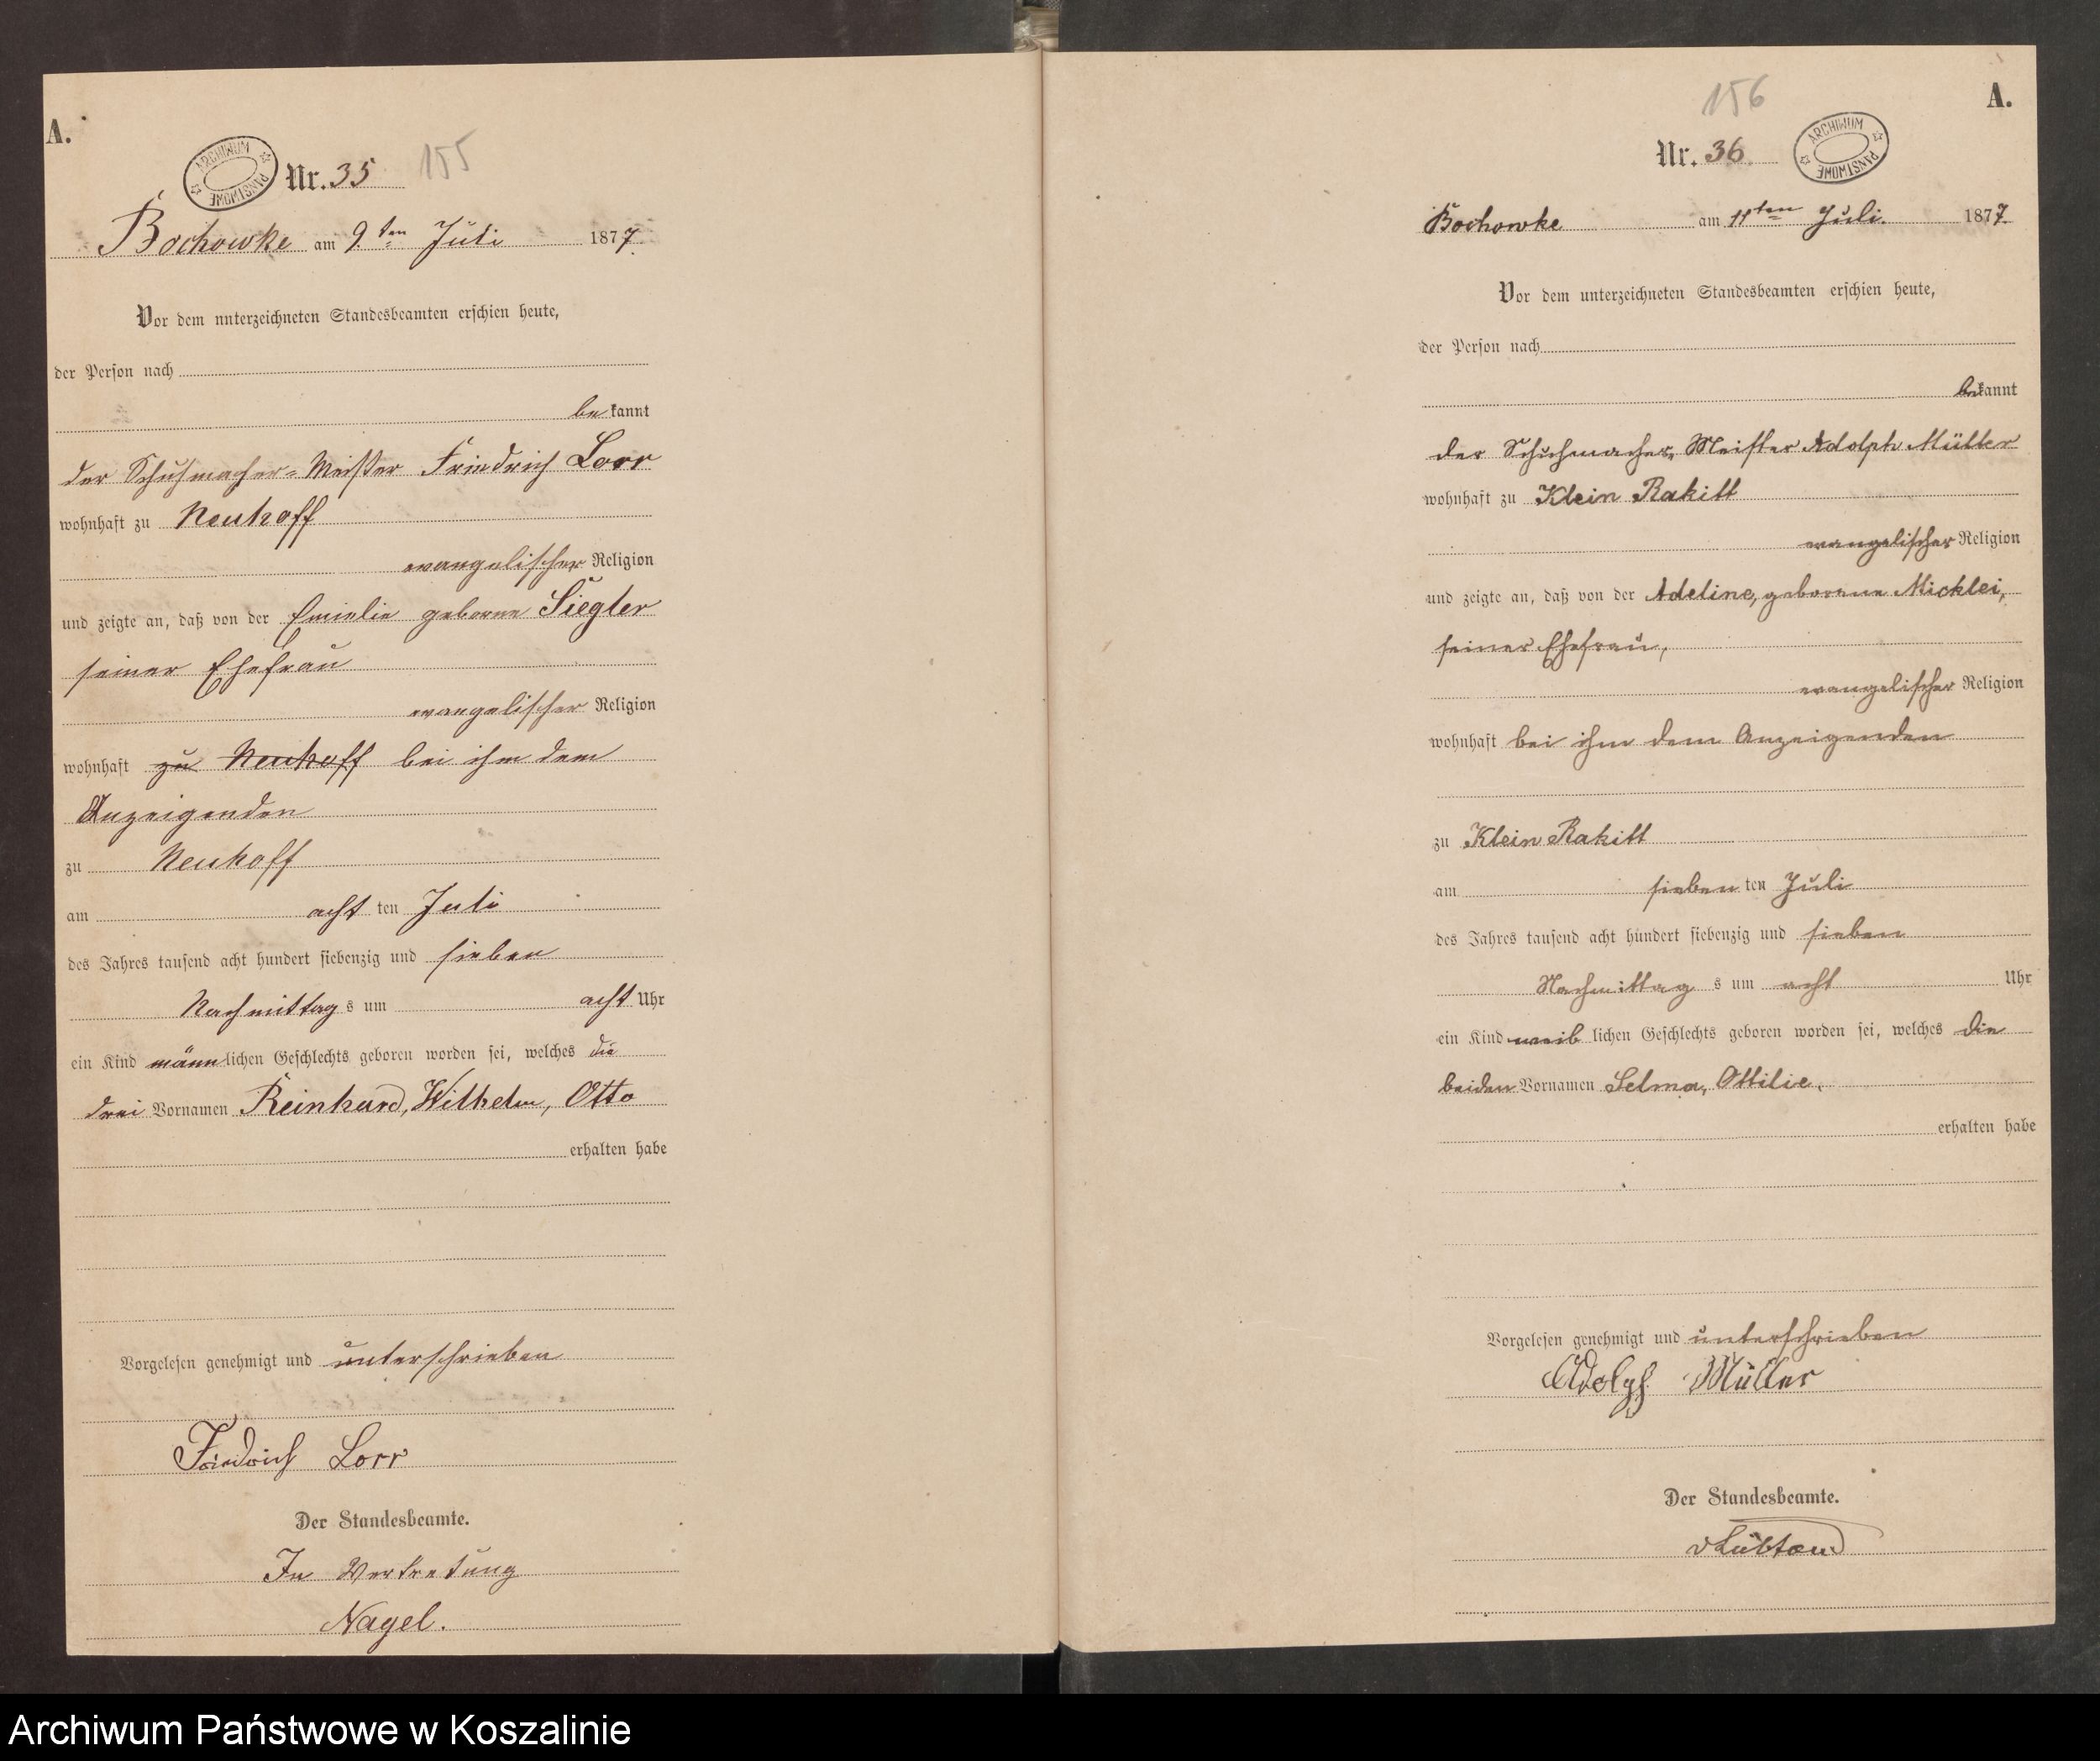 A.
ARCHIWUM PAŃSTWOWE
Nr. 35
155
Bochowke am 9ten Juli 1877.
Vor dem unterzeichneten Standesbeamten erschien heute,
der Person nach
bekannt
der Schuhmacher-Meister Friedrich Lorr
wohnhaft zu Neuhoff
evangelischer Religion
und zeigte an, daß von der Emielie geborne Siegler
seiner Ehefrau
evangelischer Religion
wohnhaft zu Neuhoff bei ihm dem
Anzeigenden
zu Neuhoff
am acht ten Juli
des Jahres tausend acht hundert siebenzig und sieben
Nachmittags um acht Uhr
ein Kind männlichen Geschlechts geboren worden sei, welches die
drei Vornamen Reinhard, Wilhelm, Otto
erhalten habe
Vorgelesen genehmigt und unterschrieben
Friedrich Lorr
Der Standesbeamte.
In Vertretung
Nagel.
156
A.
Nr. 36.
ARCHIWUM PAŃSTWOWE
Bochowke am 11ten Juli. 1877.
Vor dem unterzeichneten Standesbeamten erschien heute,
der Person nach
bekannt
der Schuhmacher-Meister Adolph Müller
wohnhaft zu Klein Rakitt
evangelischer Religion
und zeigte an, daß von der Adeline, geborene Micklei,
seiner Ehefrau,
evangelischer Religion
wohnhaft bei ihm dem Anzeigenden
zu Klein Rakitt
am sieben ten Juli
des Jahres tausend acht hundert siebenzig und sieben
Nachmittag s um acht Uhr
ein Kind weiblichen Geschlechts geboren worden sei, welches die
beiden Vornamen Selma, Ottilie,
erhalten habe
Vorgelesen genehmigt und unterschrieben
Adolph Müller
Der Standesbeamte.
vLübtow
Archiwum Państwowe w Koszalinie